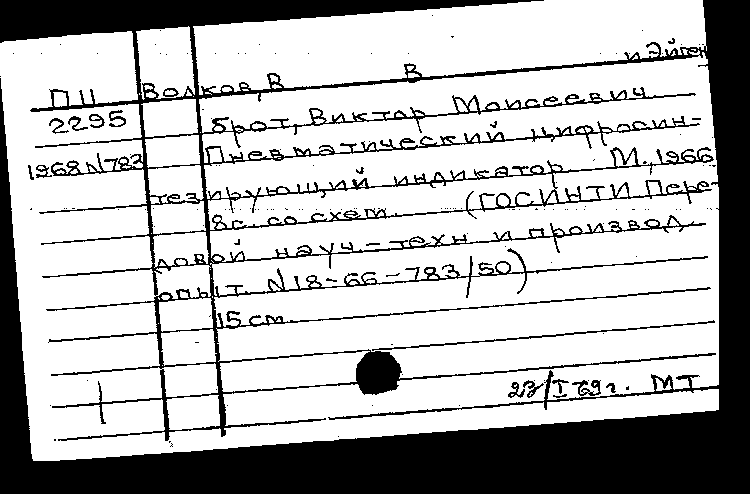 ПII Волков, В В и Эйген
2295 брот, Виктор Моисеевич
1968 N 783 Пневматический цифросин=
тезирующий индикатор. М., 1966
8 с. со схем. (ГОСИНТИ Пере-
довой науч.-техн и производ.
опыт. N 18-66-783/50)
15 см.
23/I 69 г. МТ